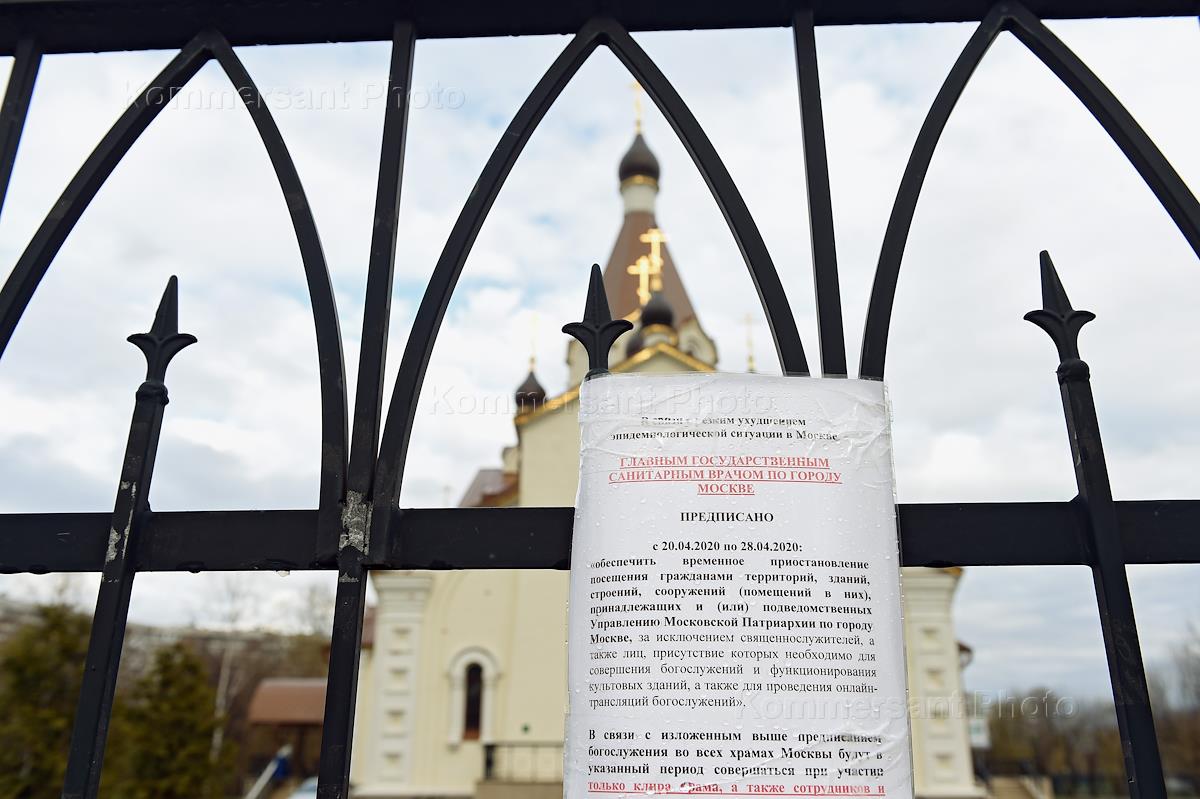 Kommersant Photo
Kommersant Photo
В связи с резким ухудшением
эпидемиологической ситуации в Москве
ГЛАВНЫМ ГОСУДАРСТВЕННЫМ
САНИТАРНЫМ ВРАЧОМ ПО ГОРОДУ
МОСКВЕ
ПРЕДПИСАНО
с 20.04.2020 по 28.04.2020:
«обеспечить временное приостановление
посещения гражданами территорий, зданий,
строений, сооружений (помещений в них),
принадлежащих и (или) подведомственных
Управлению Московской Патриархии по городу
Москве, за исключением священнослужителей, а
также лиц, присутствие которых необходимо для
совершения богослужений и функционирования
культовых зданий, а также для проведения онлайн-
трансляций богослужений».
Kommersant Photo
В связи с изложенным выше предписанием
богослужения во всех храмах Москвы будут в
указанный период совершаться при участии
только клира храма, а также сотрудников и